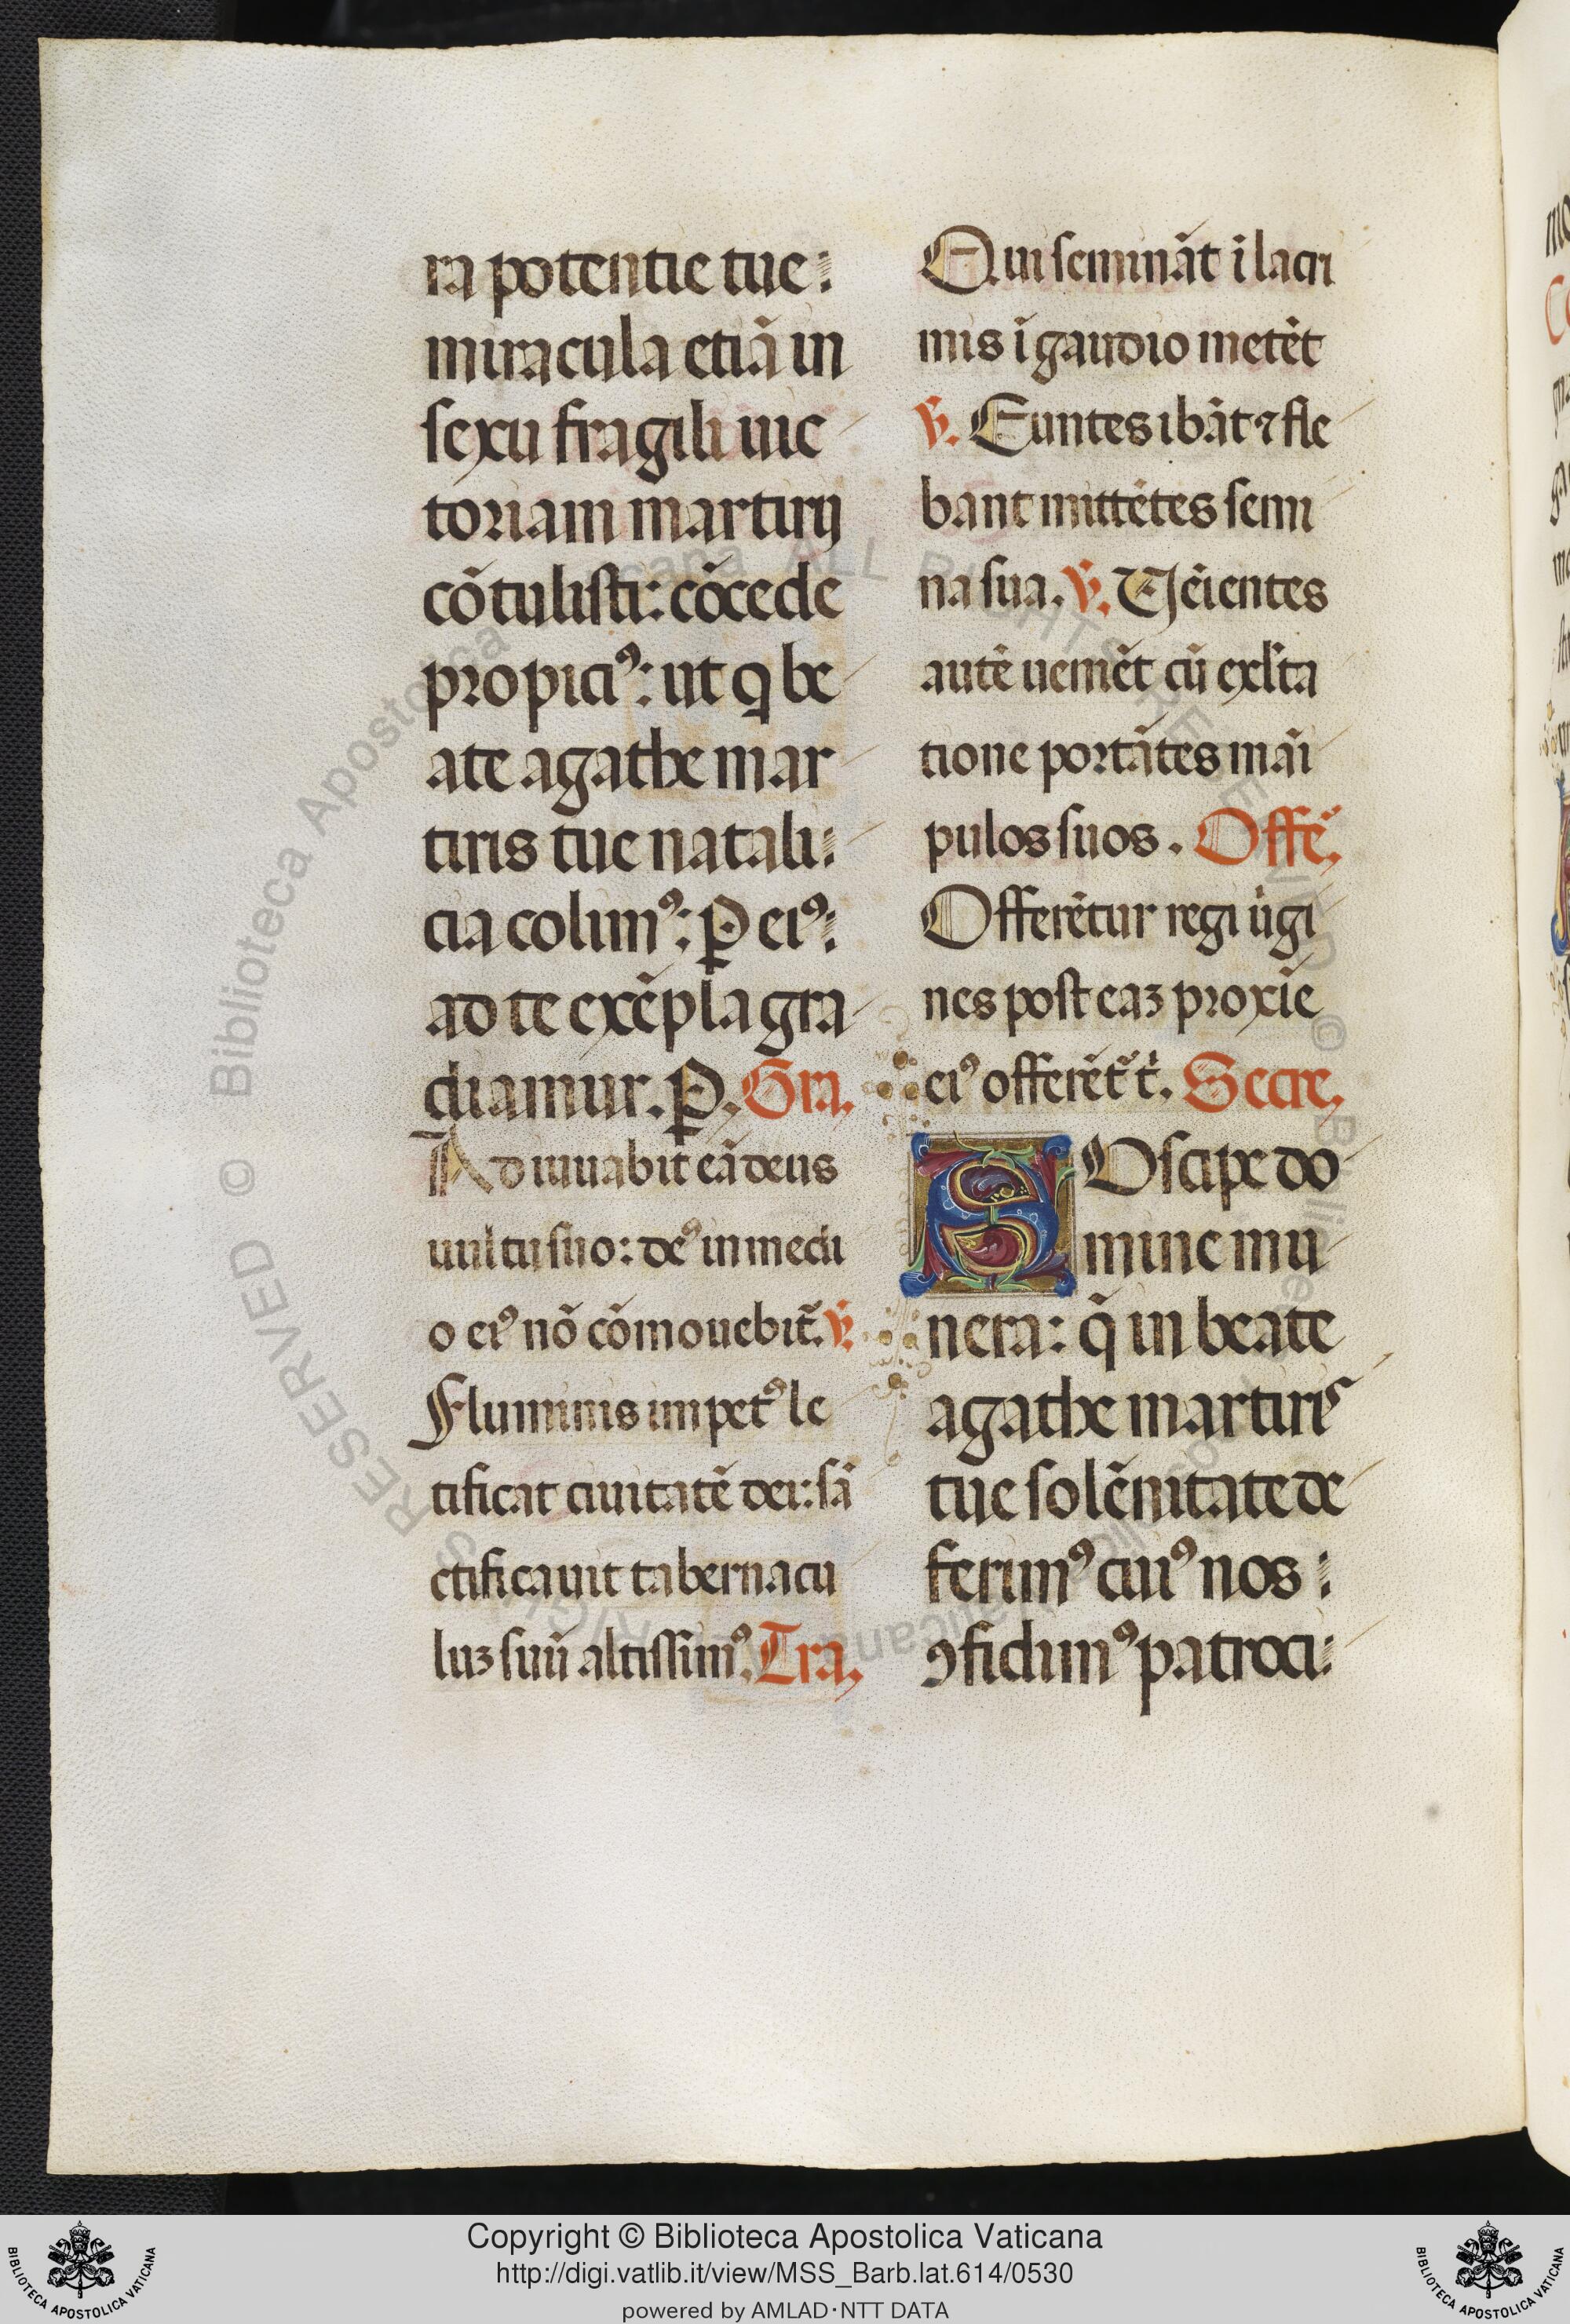 ra potentie tue:
miracula etiā in
sexu fragili uic
toriam martirij
cōtulisti: cōcede
propiciꝰ: ut q be
ate agathe mar
tiris tue natali:
cia colimꝰ: ꝑ eiꝰ:
ad te exēpla gra
diamur. ꝑ. Gra.
Adiuuabit eā deus
uultu suo: deꝰ in medi
o eiꝰ nō cōmouebit̃. ℣.
Fluminis impetꝰ le
tificat ciuitatē dei: sā
ctificauit tabernacu
luꝫ suū altissimꝰ. Tra.
Qui semināt ī lacri
mis ī gaudio metēt
℣. Euntes ibāt ⁊ fle
bant mittētes semi
na sua. ℣. Uēientes
autē uenīet cū exl̄ta
tione portātes māi
pulos suos. Offē.
Offerētur regi ūgi
nes post eaꝫ proxīe
eiꝰ offerēt̃ t̄. Secre.
SUscipe do
mine mu
nera: q̄ in beate
agathe martiris
tue solēnitate de
ferimꝰ cuiꝰ nos:
ꝯfidimꝰ patroci:
Copyright © Biblioteca Apostolica Vaticana
http://digi.vatlib.it/view/MSS_Barb.lat.614/0530
powered by AMLAD·NTT DATA
BIBLIOTECA APOSTOLICA VATICANA
BIBLIOTECA APOSTOLICA VATICANA